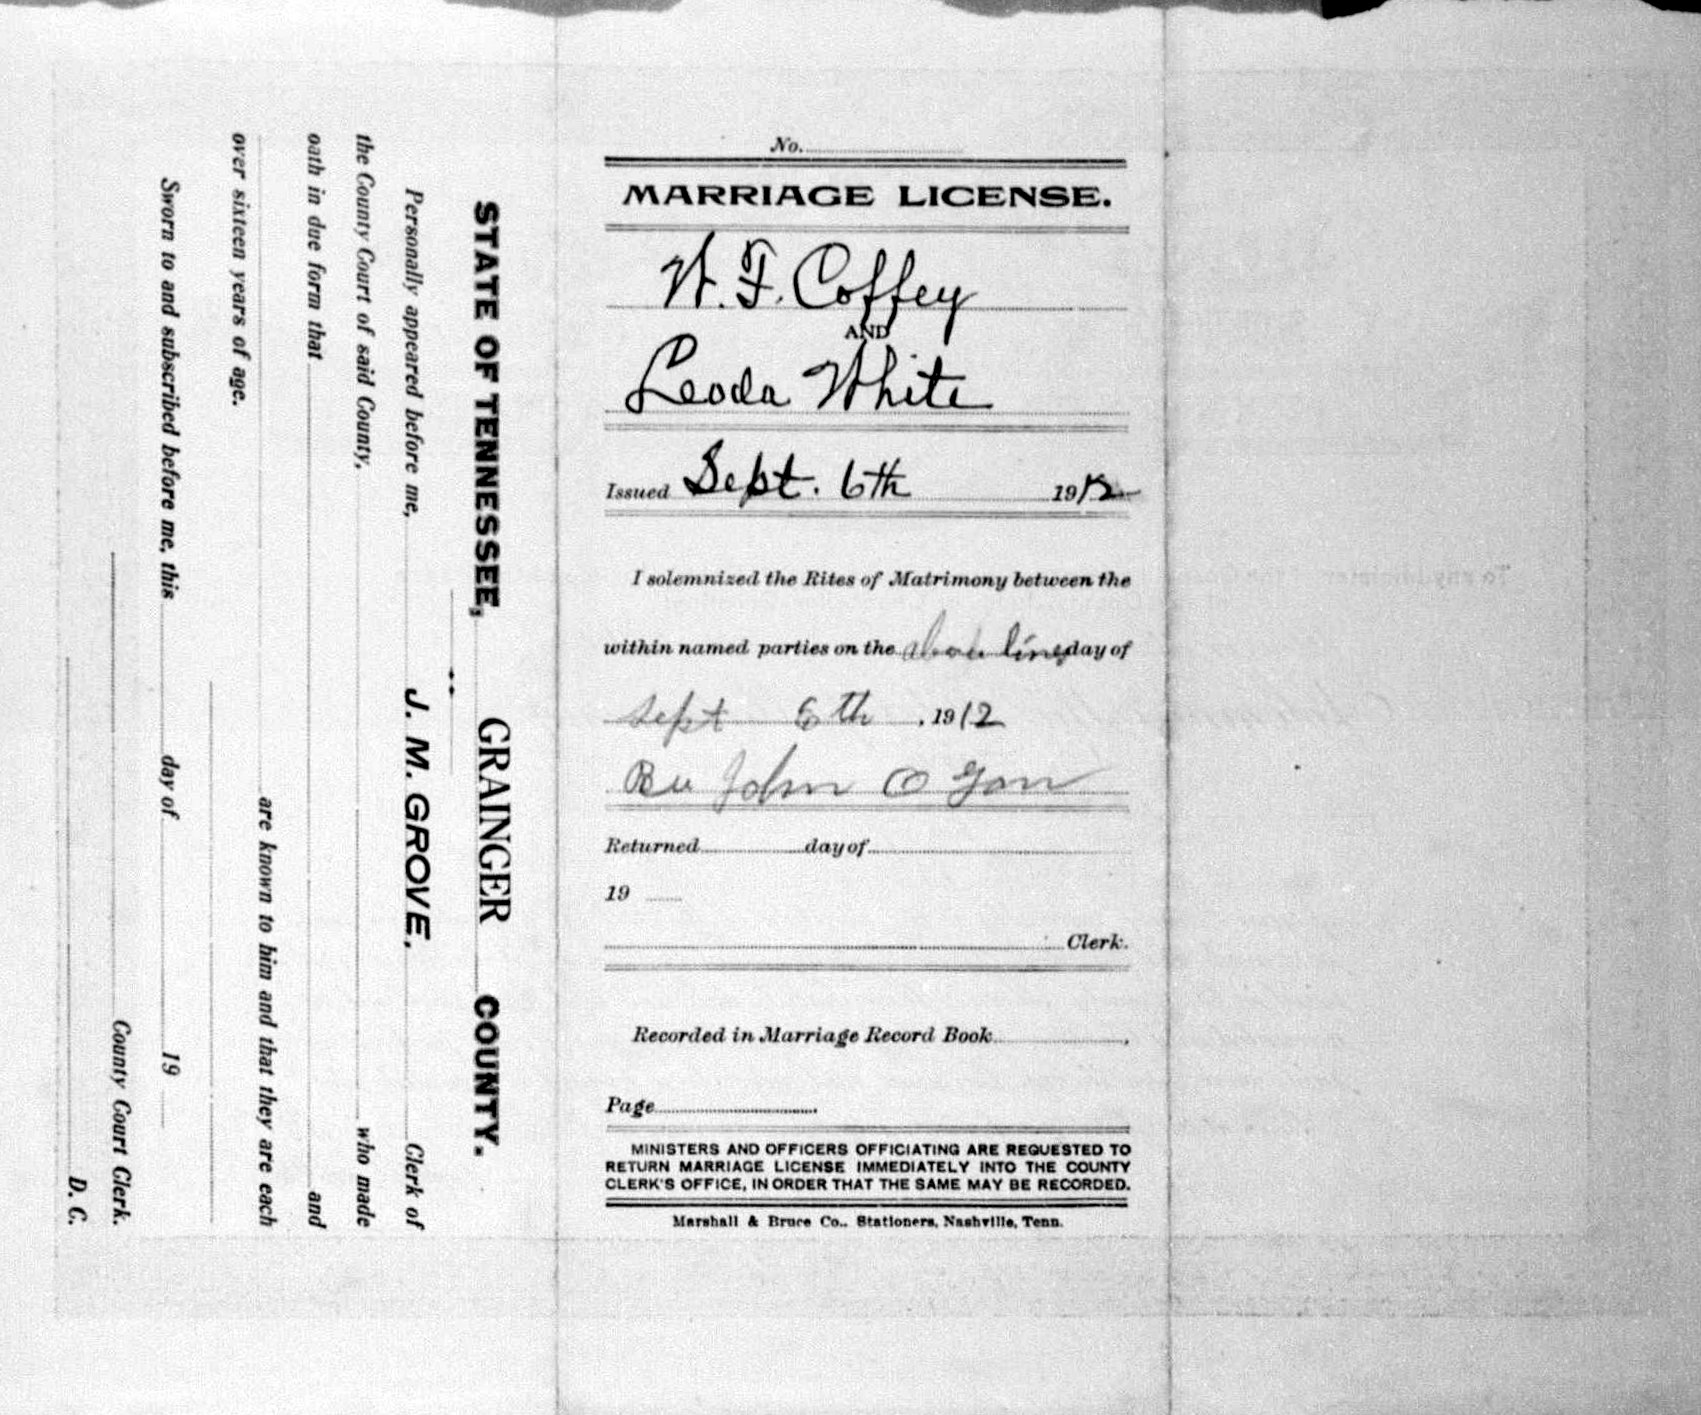 No.
MARRIAGE LICENSE.
W. F. Coffey
AND
Leoda White
Issued Sept. 6th 1912
I solemnized the Rites of Matrimony between the
within named parties on the day of
Sept 6th , 1912
John O
Returned day of
19
Clerk.
Recorded in Marriage Record Book ,
Page .
MINISTERS AND OFFICERS OFFICIATING ARE REQUESTED TO
RETURN MARRIAGE LICENSE IMMEDIATELY INTO THE COUNTY
CLERK'S OFFICE, IN ORDER THAT THE SAME MAY BE RECORDED.
Marshall & Bruce Co., Stationers, Nashville, Tenn.
STATE OF TENNESSEE, GRAINGER COUNTY.
Personally appeared before me, J. M. GROVE, Clerk of
the County Court of said County, who made
oath in due form that and
are known to him and that they are each
over sixteen years of age.
Sworn to and subscribed before me, this day of 19
County Court Clerk.
D. C.